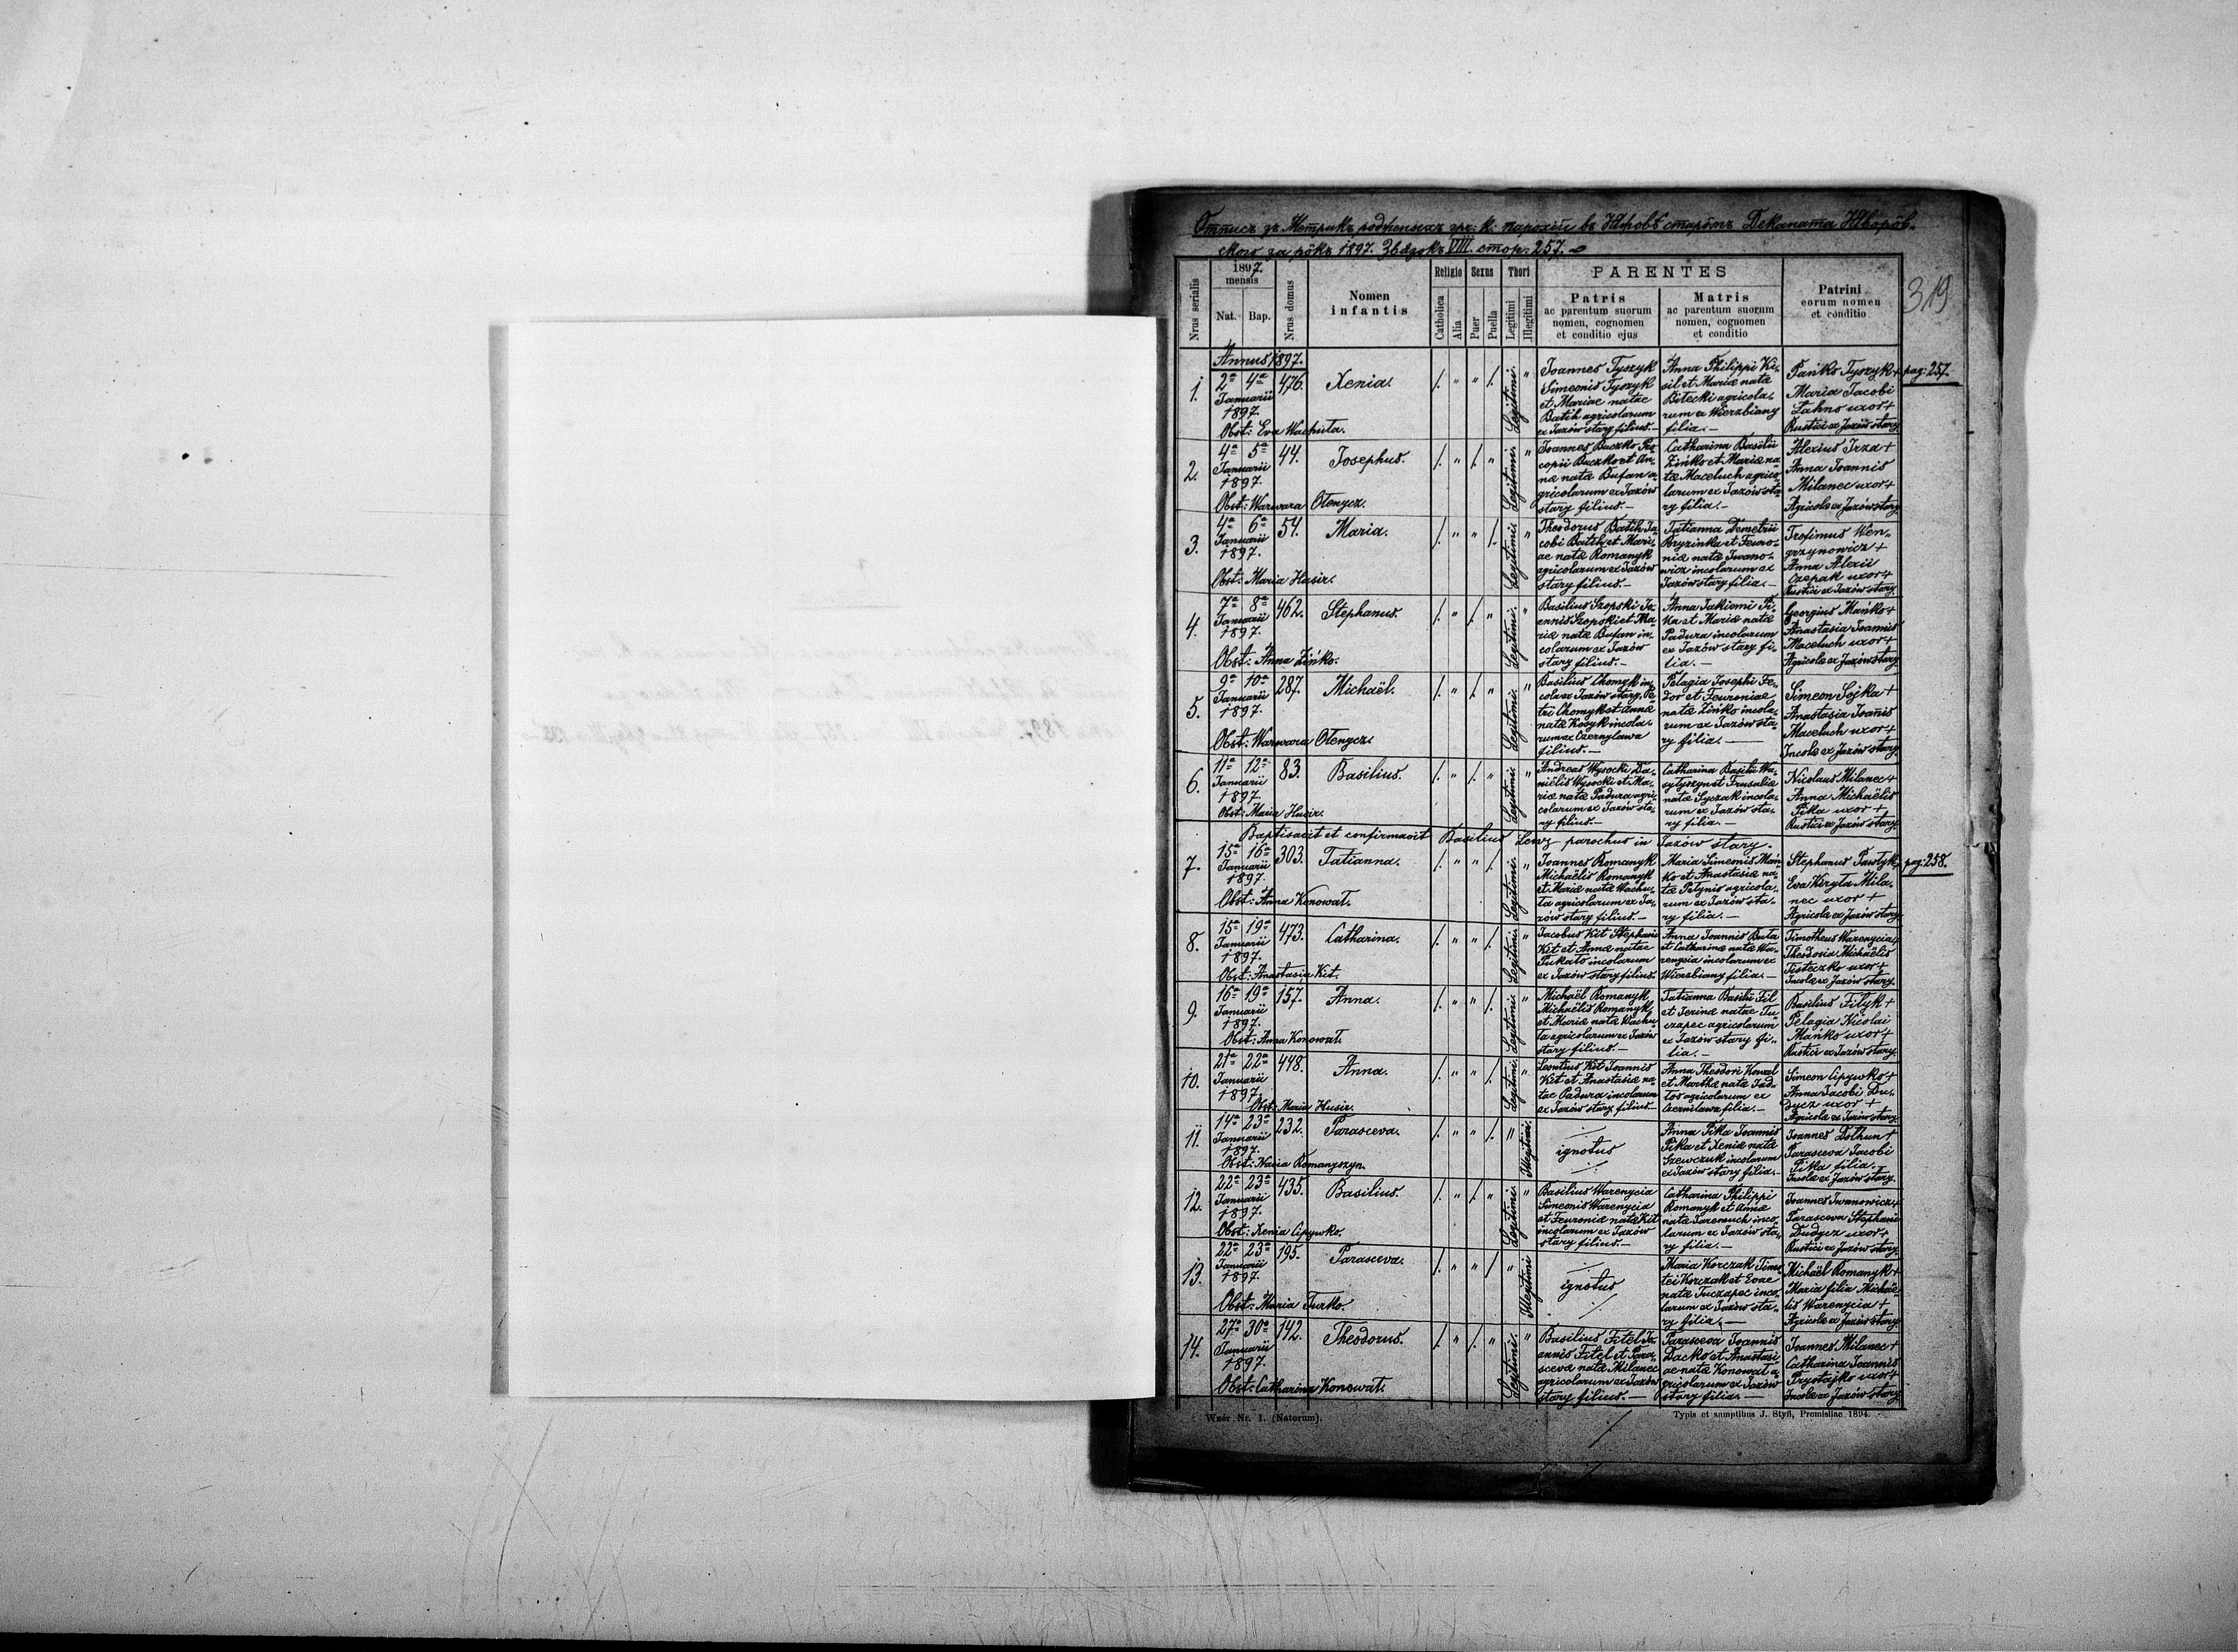 Отпись зъ Метрикъ родженыхъ гр. к. парохіи въ Яровѣ старôмъ Деканата Яворôв-
ского за рôкъ 1897. Звязокъ VIII. стор: 257.
319
Nrus serialis
1897.
mensis
Nat. Bap.
Nrus domus
Nomen
infantis
Religio Sexus Thori
Catholica Alia Puer Puella Legitimi Illegitimi
PARENTES
Patris
ac parentum suorum
nomen, cognomen
et conditio ejus
Matris
ac parentum suorum
nomen, cognomen
et conditio
Patrini
eorum nomen
et conditio
Annus 1897.
1. 2a 4a Januarii 1897. 476. Xenia. Legitimi.
Obst: Eva Wachuta.
Joannes Tyszyk
Simeonis Tyszyk
et Mariae natae
Batih agricolarum
ex Jazów stary filius.—
Anna Philippi Ki-
sil et Mariæ natæ
Bilecki agricola-
rum ex Wierzbiany
filia.—
Pańko Tyszyk +
Maria Jacobi
Lahns uxor +
Rustici ex Jazów stary
pag: 257.
2. 4a 5a Januarii 1897. 44. Josephus. Legitimi.
Obst: Warwara Olenycz.
Joannes Buczko Pro-
copii Buczko et An-
næ natæ Bufan a-
gricolarum ex Jazów
stary filius.—
Catharina Basilii
Zińko et Mariæ na-
tæ Maceluch agrico-
larum ex Jazów sta-
ry filia.—
Alexius Irza +
Anna Joannis
Milanec uxor +
Agricolæ ex Jazów stary
3. 4a 6a Januarii 1897. 54. Maria. Legitimi.
Obst: Maria Husir.
Theodorus Batih Ja-
cobi Batih et Mari-
ae natæ Romanyk
agricolarum ex Jazów
stary filius.—
Tatianna Demetrii
Bryzinka et Feuro-
niæ natæ Iwano-
wicz incolarum ex
Jazów stary filia.—
Trofimus Wen-
grzynowicz +
Anna Alexii
Czepak uxor +
Rustici ex Jazów stary
4. 7a 8a Januarii 1897. 462. Stephanus. Legitimi.
Obst: Anna Zińko.
Basilius Szopski Jo-
annis Szopski et Ma-
riæ natæ Bufan in-
colarum ex Jazów
stary filius.—
Anna Jakiemi Pi-
ka et Mariæ natæ
Padura incolarum
ex Jazów stary fi-
lia.—
Georgius Mańko +
Anastasia Joannis
Maceluch uxor +
Agricolæ ex Jazów stary
5. 9a 10a Januarii 1897. 287. Michaël. Legitimi.
Obst: Warwara Olenycz.
Basilius Chomyk in-
cola ex Jazów stary, Pe-
tri Chomyk et Annæ
natæ Kosyk incola-
rum ex Czernylawa
filius.—
Pelagia Josephi Fe-
dor et Feuroniae
natæ Zińko incola-
rum ex Jazów sta-
ry filia.—
Simeon Sejka +
Anastasia Joañis
Maceluch uxor +
Incolæ ex Jazów stary
6. 11a 12a Januarii 1897. 83. Basilius. Legitimi.
Obst: Maria Husir.
Andreas Wysocki Da-
niëlis Wysocki et Ma-
riæ natæ Padura agri-
colarum ex Jazów sta-
ry filius.—
Catharina Basilii Wa-
sylyszyn et Frusaliæ
natæ Syczak incola-
rum ex Jazów sta-
ry filia.—
Nicolaus Milanec +
Anna Michaëlis
Pika uxor +
Rustici ex Jazów stary
Baptisavit et confirmavit Basilius Lewz parochus in Jazów stary.
7. 15a 16a Januarii 1897. 303. Tatianna. Legitimi.
Obst: Anna Konowat.
Joannes Romanyk
Michaëlis Romanyk
et Mariæ natæ Wachu-
ta agricolarum ex Ja-
zów stary filius.—
Maria Simeonis Mań-
ko et Anastasiæ na-
tæ Petynis agricola-
rum ex Jazów sta-
ry filia.—
Stephanus Pawlyk +
Eva Keryla Mila-
nec uxor +
Agricolæ ex Jazów stary
pag: 258.
8. 15a 19a Januarii 1897. 473. Catharina. Legitimi.
Obst: Anastasia Kit.
Jacobus Kit Stephani
Kit et Annæ natae
Pukato incolarum
ex Jazów stary filius.
Anna Joannis Buta
et Catharinæ natæ Wa-
renycia incolarum ex
Wierzbiany filia.—
Timotheus Warenycia +
Theodosia Michaëlis
Tisteczko uxor +
Incolæ ex Jazów stary.
9. 16a 19a Januarii 1897. 157. Anna. Legitimi.
Obst: Anna Konowat.
Michaël Romanyk
Michaëlis Romanyk
et Mariæ natæ Wachu-
ta agricolarum ex Jazów
stary filius.—
Tatianna Basilii Fil
et Xeniæ natae Tu-
czapec agricolarum
ex Jazów stary fi-
lia.—
Basilius Filyk +
Pelagia Nicolai
Mańko uxor +
Rustici ex Jazów stary.
10. 21a 22a Januarii 1897. 448. Anna. Legitimi.
Obst: Maria Husir.
Leontius Kit Joannis
Kit et Anastasiæ na-
tae Padura incolarum
ex Jazów stary filius.
Anna Theodori Kowal
et Marthæ natæ Jad-
los agricolarum ex
Czernilawa filia.—
Simeon Cipywko +
Anna Jacobi Du-
dycz uxor +
Agricolæ ex Jazów stary.
11. 14a 23a Januarii 1897. 232. Parasceva. Illegitimi.
Obst: Nacia Romanyszyn.
ignotus
Anna Pika Joannis
Pika et Xeniæ natæ
Szewczuk incolarum
ex Jazów stary filia.
Joannes Dolhun +
Parasceva Jacobi
Pika filia.—
Incolæ ex Jazów stary.
12. 22a 23a Januarii 1897. 435. Basilius. Legitimi.
Obst: Xenia Cipywko.
Basilius Warenycia
Simeonis Warenycia
et Feuroniæ natæ Kit
incolarum ex Jazów
stary filius.—
Catharina Philippi
Romanyk et Annæ
natæ Jaremuch inco-
larum ex Jazów sta-
ry filia.—
Joannes Iwanowicz +
Parasceva Stephani
Dudycz uxor +
Rustici ex Jazów stary
13. 22a 23a Januarii 1897. 195. Parasceva. Illegitimi
Obst: Maria Turko.
ignotus
Maria Korczak Timo-
tei Korczak et Evae
natæ Tuczapec inco-
larum ex Jazów sta-
ry filia.—
Michaël Romanyk +
Maria filia Michaë-
lis Warenycia +
Agricolæ ex Jazów stary.
14. 27a 30a Januarii 1897. 142. Theodorus. Legitimi.
Obst: Catharina Konowat.
Basilius Fitel Jo-
annis Fitel et Para-
scevæ natæ Milanec
agricolarum ex Jazów
stary filius.—
Parasceva Joannis
Dacko et Anastasi-
ae natæ Konowat a-
gricolarum ex Jazów
stary filia.—
Joannes Milanec +
Catharina Joannis
Prystajko uxor +
Incolæ ex Jazów stary
Wzór Nr. 1. (Natorum).
Typis et sumptibus J. Styfi, Premisliae 1894.